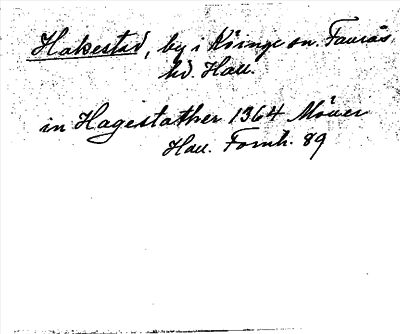 Hakestad, by i Köinge sn. Faurås
hd. Hall.
in Hagestather 1364 Möller
Hall. Fornh. 89